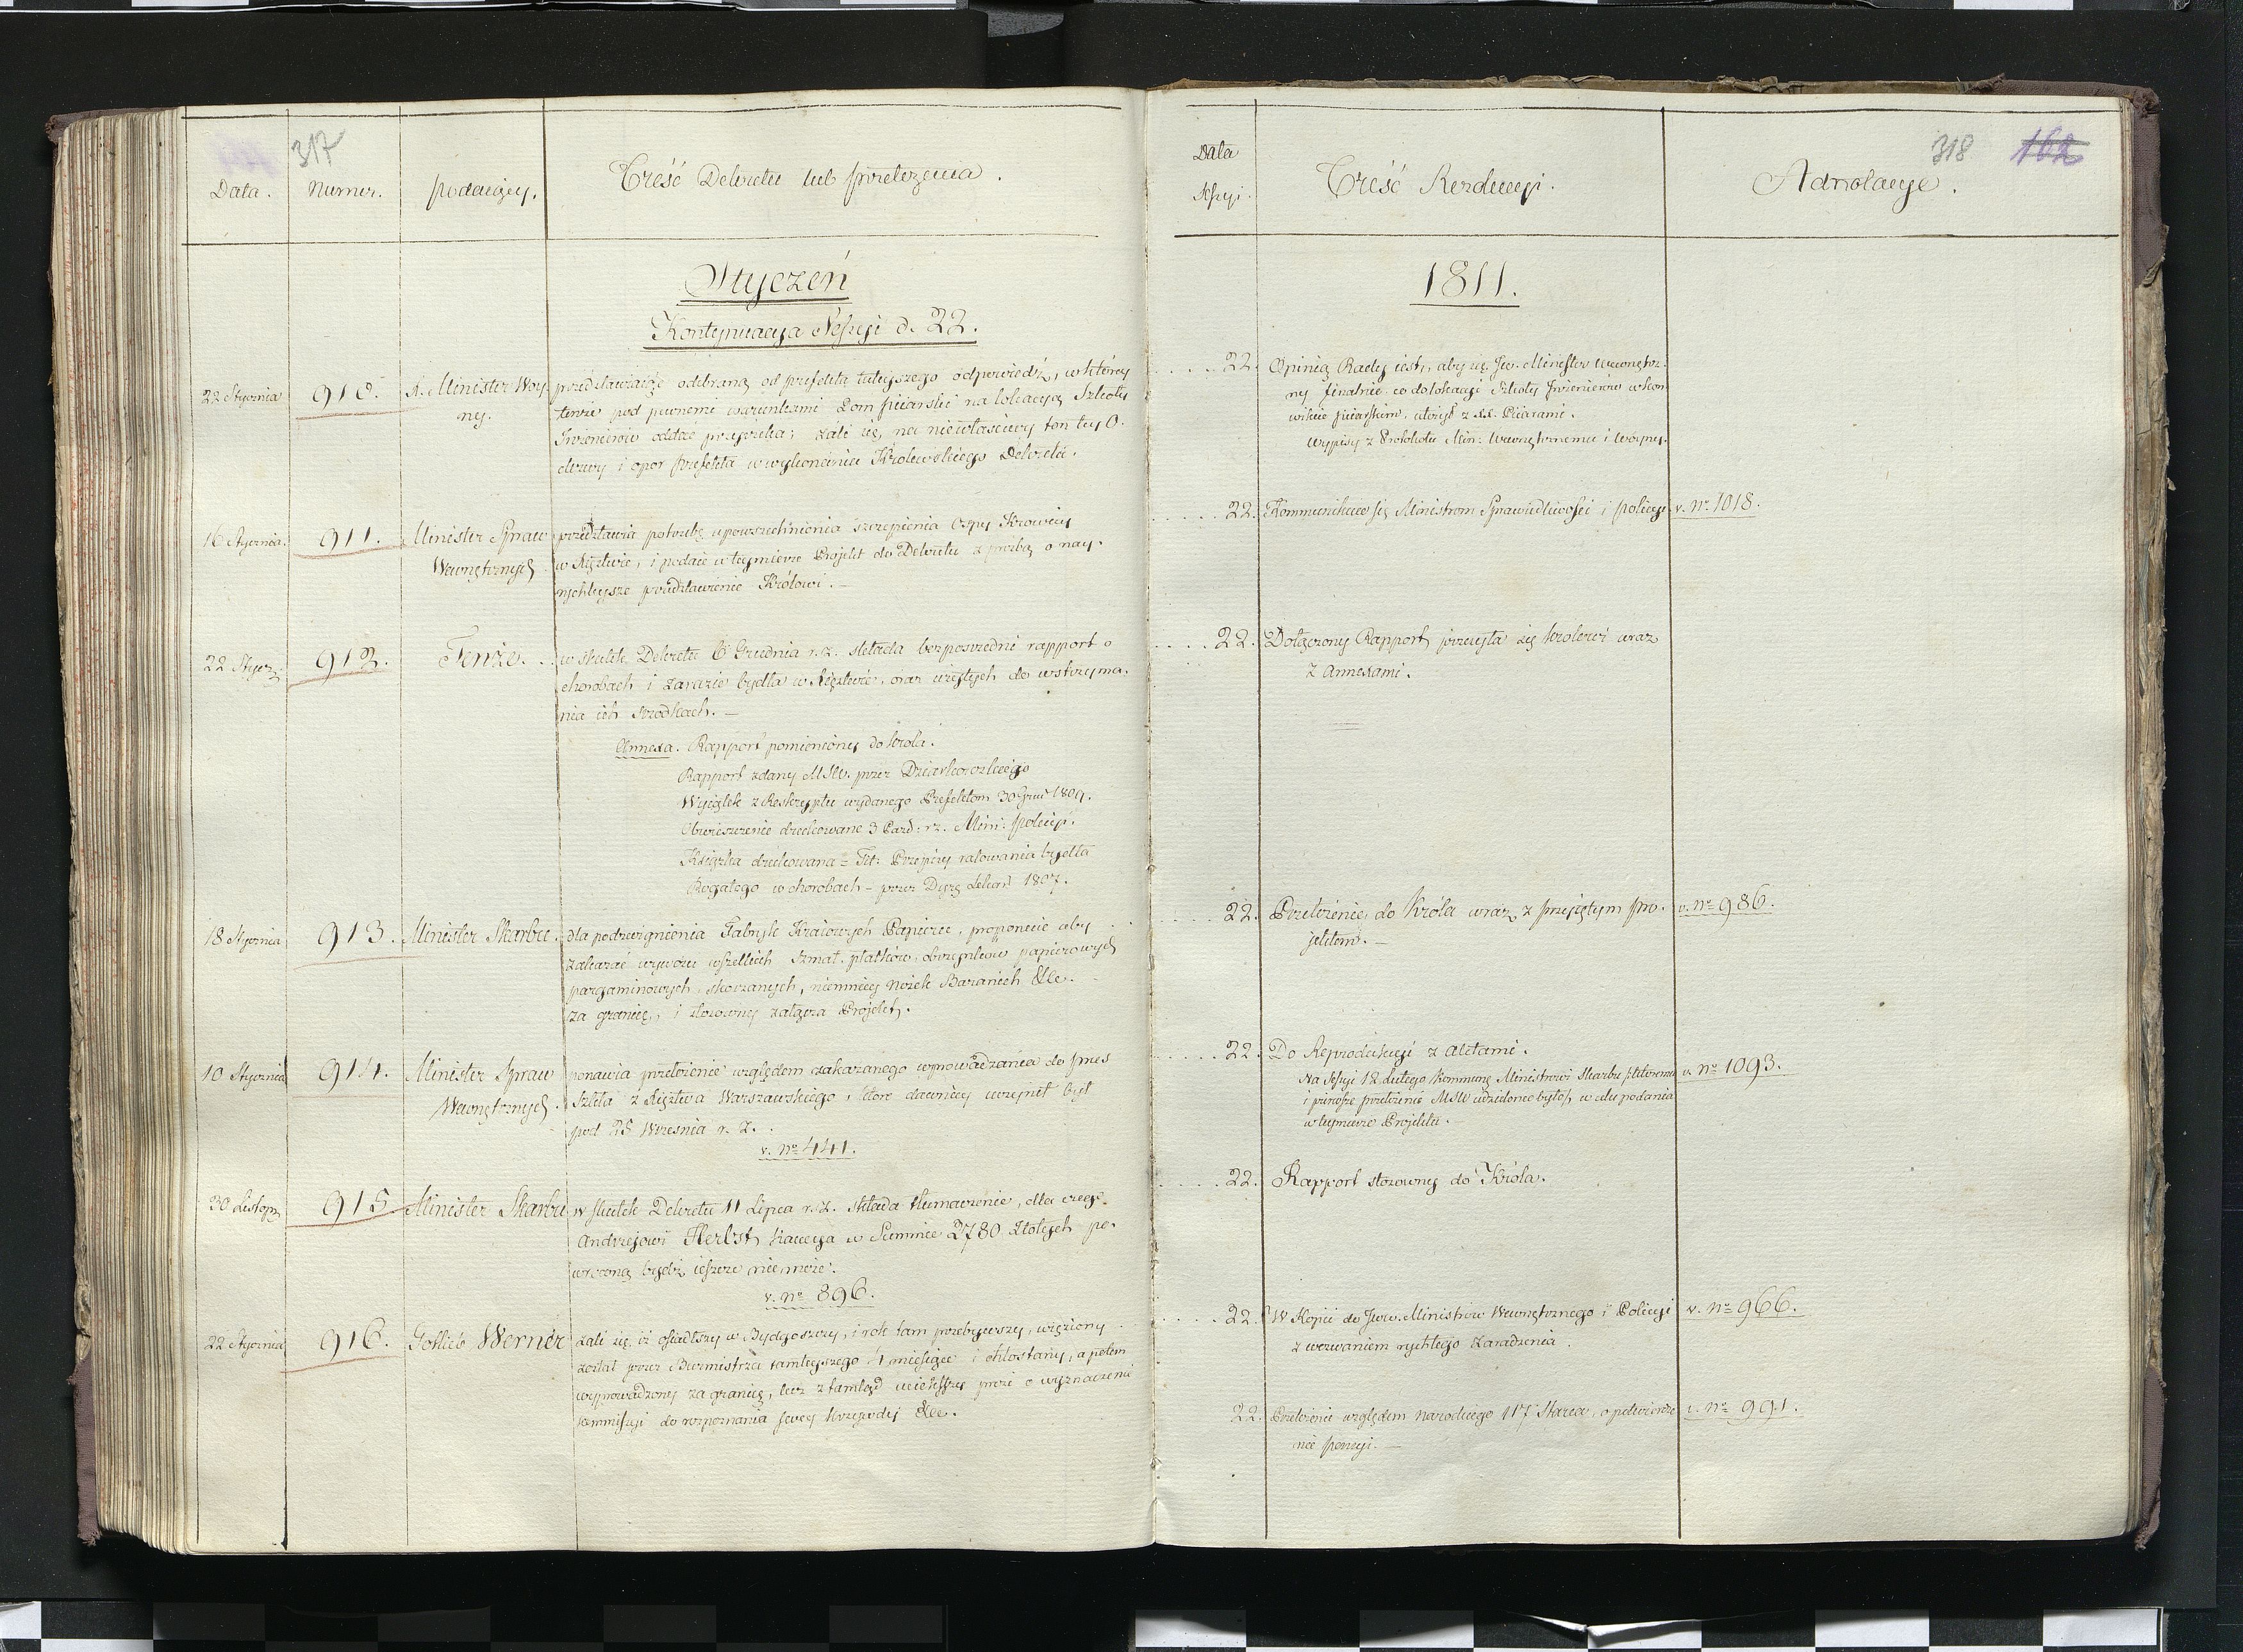 317
Data.
Numer.
Podaiący.
Treść Dekretu lub przełożenia.
Styczeń
Kontynuacya Sessyi d. 22.
22 Stycznia
910.
Minister Woy-
ny.
przedstawiaiąc odebraną od prefekta tuteyszego odpowiedź, w którey
tenże pod pewnemi warunkami Dom piiarski na lokacyą Szkoły
Inżenierów oddać przyrzeka; żali się na niewłaściwy ton tey O-
dezwy i opor Prefekta w wykonaniu Królewskiego Dekretu.
16 Stycznia.
911.
Minister Spraw
Wewnętrznych
przedstawia potrzebę upowszechnienia szczepienia Ospy Krowiey
w Xięztwie, i podaie w teymierze Projekt do Dekretu z prozbą o nay-
rychleysze przedstawienie Królowi.—
22 Stycz:
912.
Tenże.
w skutek Dekretu 6 Grudnia r. z. składa bezpośredni rapport o
chorobach i zarazie bydła w Xięztwie, oraz użytych do wstrzyma-
nia ich środkach.—
Annexa. Rapport pomieniony do króla.
Rapport zdany MSW. przez Dziarkowskiego
Wyiątek z Reskryptu wydanego Prefektom 30 Grud 1809.
Obwieszczenie drukowane 3 Paźd: r. z. Mini: policyi.
Książka drukowana = Tit: Przepisy ratowania bydła
Rogatego w chorobach – przez Dyrę Lekar 1807.
18 Stycznia
913.
Minister Skarbu.
dla podzwignienia Fabryk Kraiowych Papieru, proponuie aby
zakazać wywozu wszelkich szmat, płatków, obrzynków papierowych
pargaminowych, skorzanych, niemniey nóżek Baranich &c.
za granicę, i stosowny załącza Projekt.
10 Stycznia
914.
Minister Spraw
Wewnętrznych.
ponawia przełożenie względem zakazanego wprowadzania do Prus
szkła z Xięztwa Warszawskiego, które dawniey uczynił był
pod 28 Września r. z.
v. No 441.
30 Listop
915.
Minister Skarbu
w skutek Dekretu 11 Lipca r. z. składa tłumaczenie, dla czego
Andrzejowi Herbst kaucya w Summie 2780 złotych po-
wrocona bydź ieszcze nie może.
v. No 896.
22 Stycznia
916.
Gotlieb Werner
żali się, iż osiadłszy w Bydgoszczy, i rok tam przebywszy, więziony
został przez Burmistrza tamteyszego 4 miesiące i chłostany, a potem
wyprowadzony za granicę, lecz z tamtąd uciekłszy prosi o wyznaczenie
kommissyi do rozpoznania swey krzywdy &c.
318
162
Data
Sessyi.
Treść Rezolucyi.
Adnotacye.
1811.
22.
Opinią Rady iest, aby się Jw. Minister Wewnętrz-
ny finalnie co do lokacyi Szkoły Inżenierów w kon-
wikcie piiarskim, ułożył z XX. Piiarami.
Wypisy z Protokołu Min: Wewnętrznemu i Woyny.
22.
Kommunikuie się Ministrom Sprawiedliwości i policyi
v. No 1018.
22.
Dołączony Rapport przesyła się królowi wraz
z Annexami.
22.
Przełożenie do Króla wraz z przyiętym pro-
jektem.—
v. No 986.
22.
Do Reprodukcyi z Aktami.
Na Sessyi 12 Lutego kommunę Ministrowi Skarbu któremu
i piérwsze przełożenie MSW udzielone było, w celu podania
w teymierze Projektu.—
v. No 1093.
22.
Rapport stosowny do Króla.
22.
W Kopii do Jww. Ministrów Wewnętrznego i Policyi
z wezwaniem rychłego zaradzenia.
v. No 966.
22.
Przełożenie względem 117 Starca, o potwierdze-
nie pensyi.—
v. No 991.